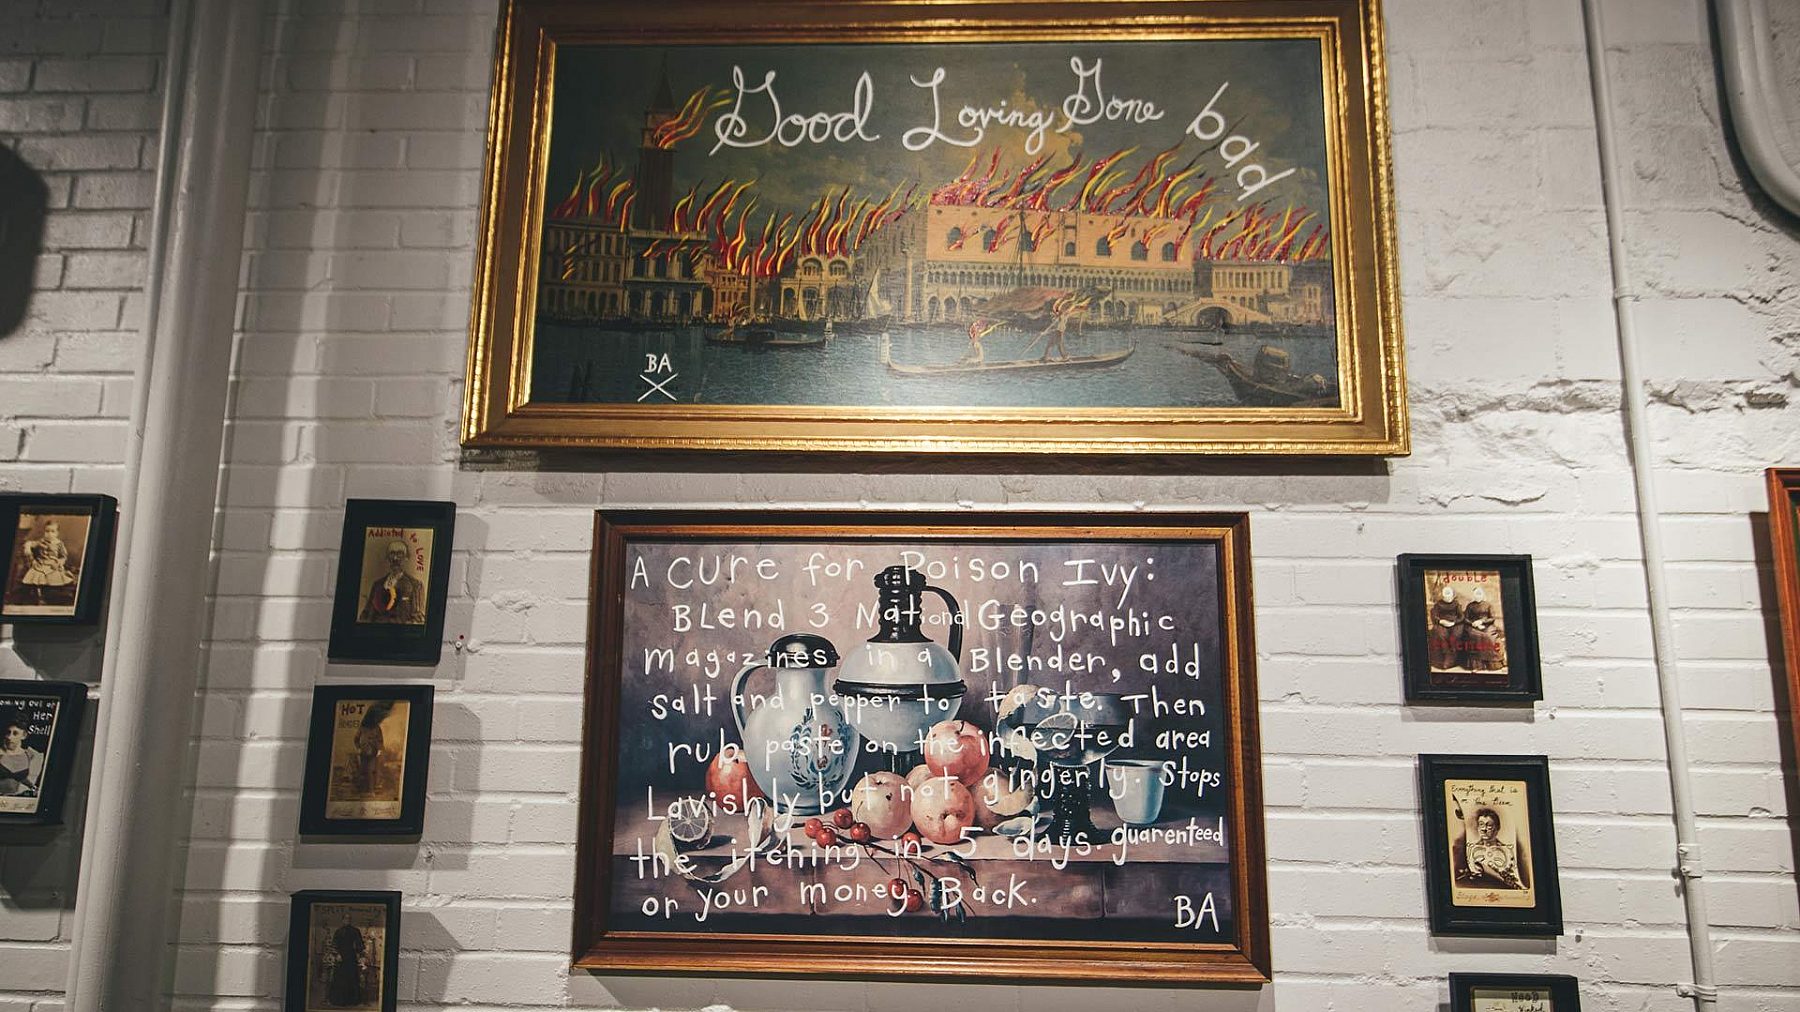 Good Loving Gone bad
BA
A CURE for Poison Ivy:
BLend 3 National Geographic
magazines in a Blender, add
salt and pepper to taste. Then
rub paste on the infected area
Lavishly but not gingerly. Stops
the itching in 5 days. guarenteed
or your money Back.
BA
Addicted to LOVE
HOT
coming out of
Her
Shell
SPLIT
double
Everything that is